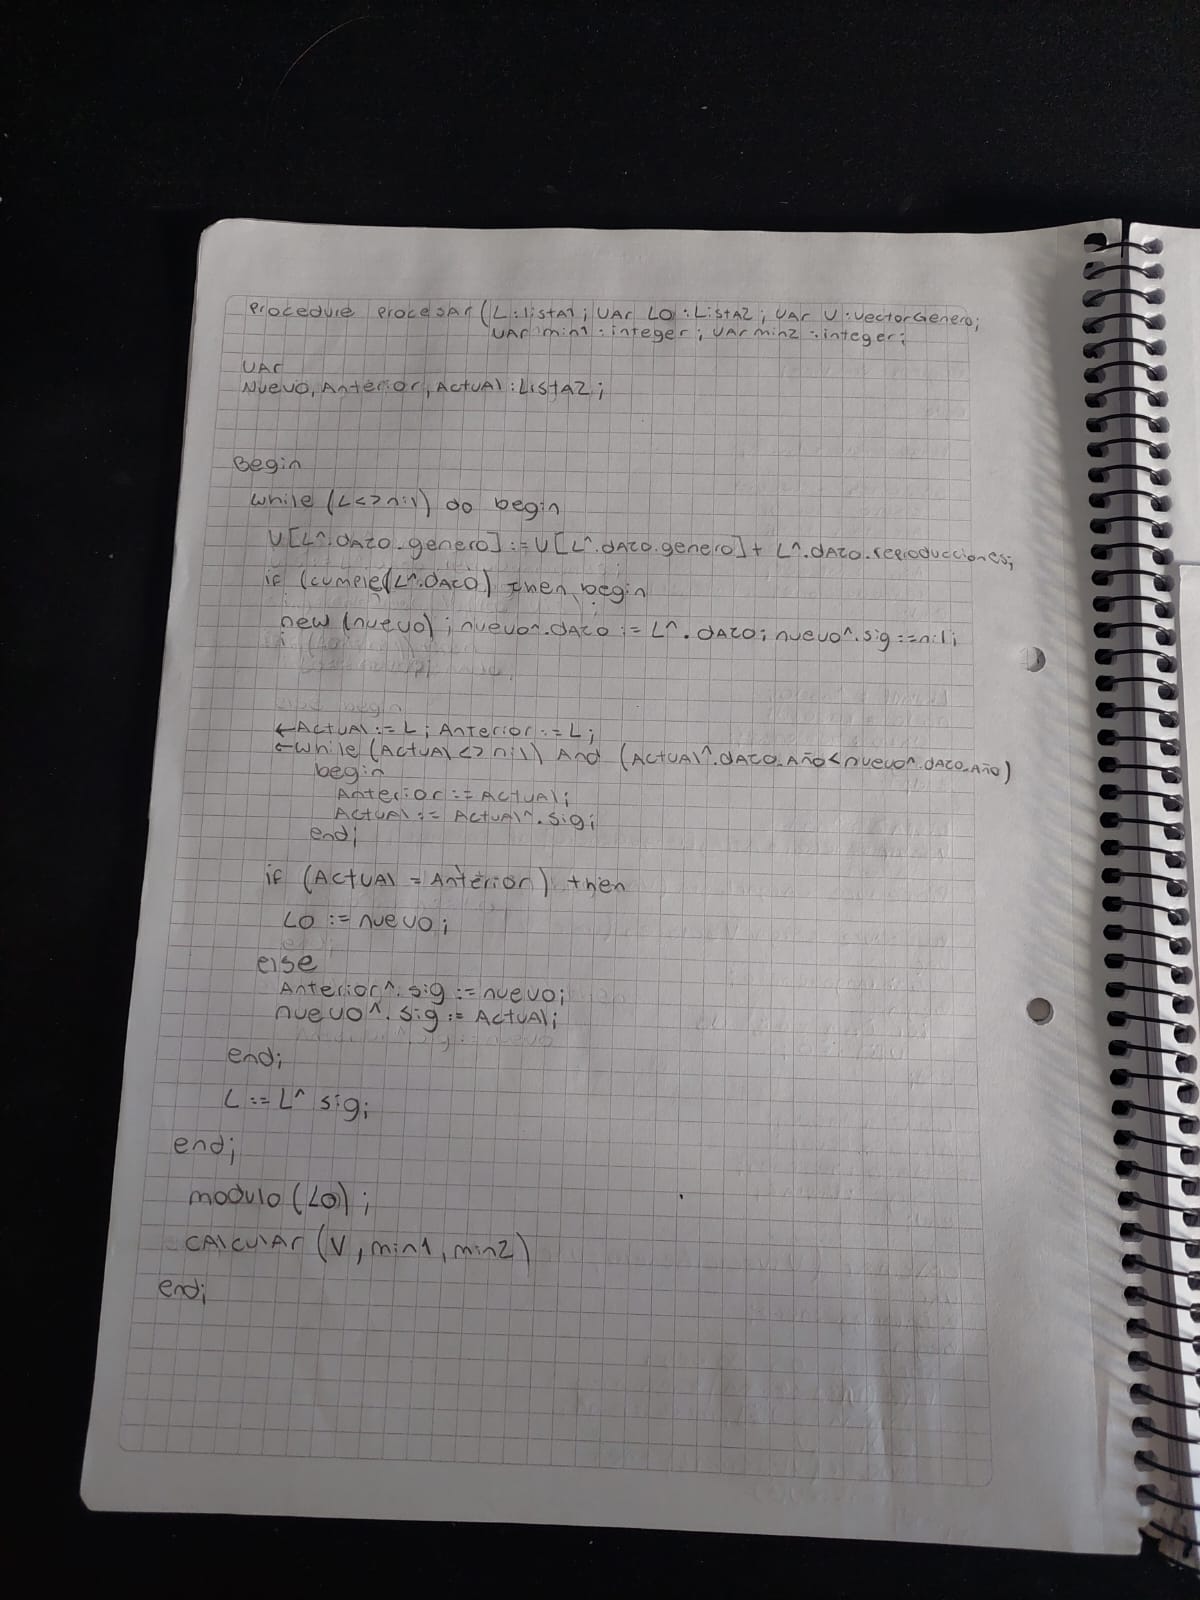 Procedure Procesar (L:listA1; VAr LO:ListA2; VAr V:vectorGenero;
VAr min1:integer; VAr min2:integer;
VAr
Nuevo, Anterior, Actual:ListA2;
Begin
while (L<>nil) do begin
V[L^.dato.genero]:=V[L^.dato.genero]+ L^.dato.reproducciones;
if (cumple(L^.dato) then begin
new (nuevo); nuevo^.dato := L^.dato; nuevo^.sig:=nil;
←Actual:=L; Anterior:=L;
←while (Actual<>nil) And (Actual^.dato.Año<nuevo^.dato.Año)
begin
Anterior:=Actual;
Actual:= Actual^.sig;
end;
if (Actual = Anterior) then
LO := nuevo;
else
Anterior^.sig:=nuevo;
nuevo^.sig:= Actual;
end;
L:=L^ sig;
end;
modulo(LO);
CAlculAr (V, min1, min2)
end;